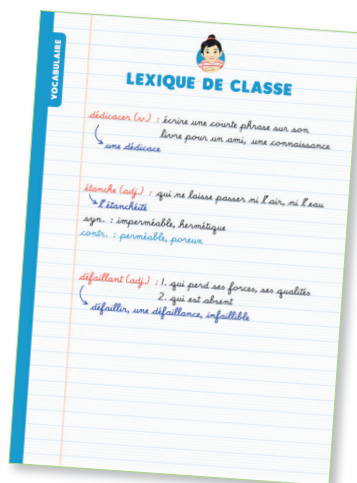 VOCABULAIRE
LEXIQUE DE CLASSE
dédicacer (v.) : écrire une courte phrase sur son
livre pour un ami, une connaissance
une dédicace
étanche (adj.) : qui ne laisse passer ni l'air, ni l'eau
l'étanchéité
syn. : imperméable, hermétique
contr. : perméable, poreux
défaillant (adj.) : 1. qui perd ses forces, ses qualités
2. qui est absent
défaillir, une défaillance, infaillible